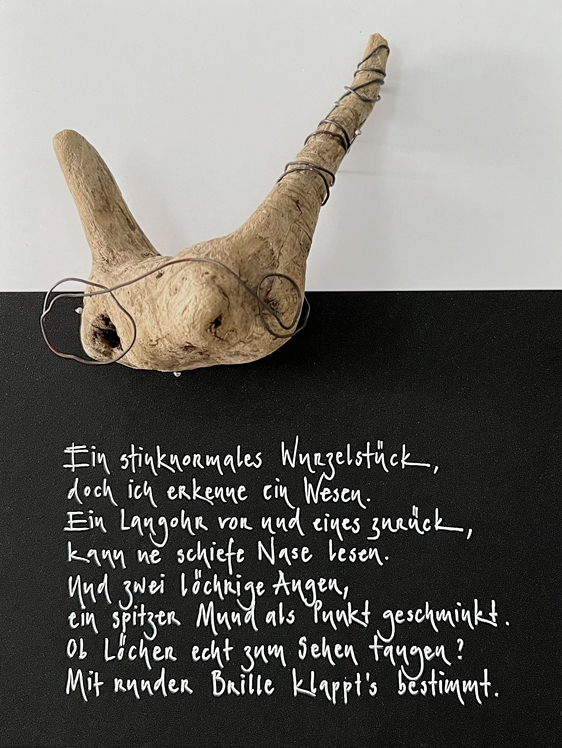 Ein stinknormales Wurzelstück,
doch ich erkenne ein Wesen.
Ein Langohr vor und eines zurück,
kann ne schiefe Nase lesen.
Und zwei löchrige Augen,
ein spitzer Mund als Punkt geschminkt.
Ob Löcher echt zum Sehen taugen?
Mit runder Brille klappt's bestimmt.